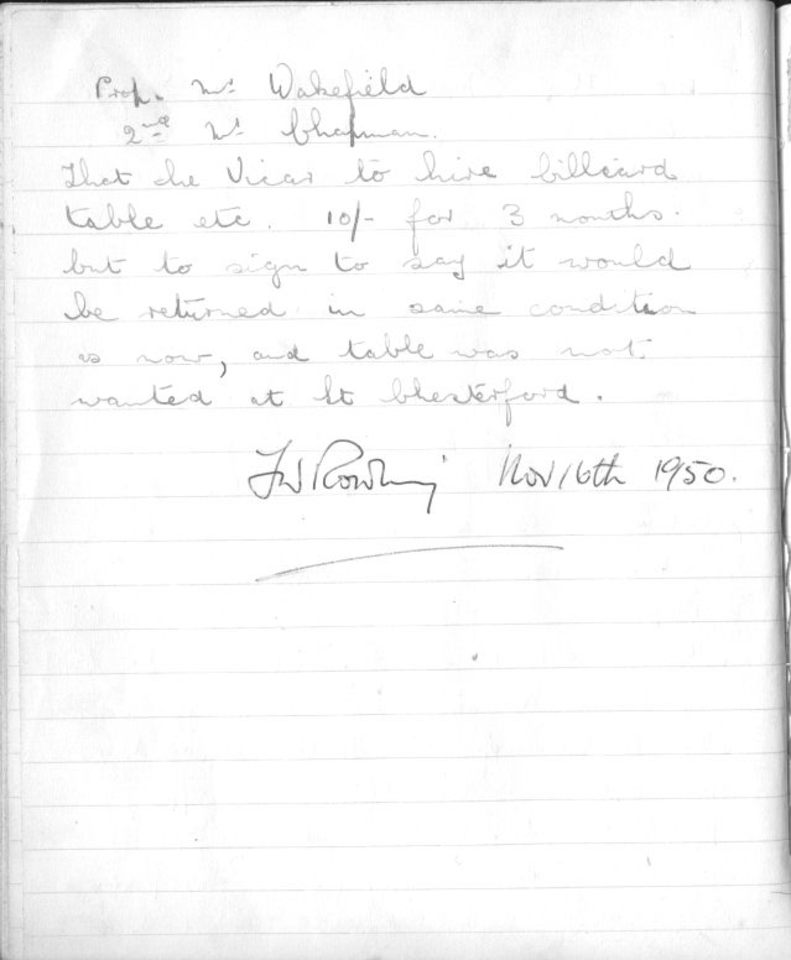 Prop. Mr Wakefield
2nd Mr Chapman.
That the Vicar to hire billiard
table etc. 10/- for 3 months.
but to sign to say it would
be returned in same condition
as now, and table was not
wanted at Lt Chesterford.
Nov 16th 1950.